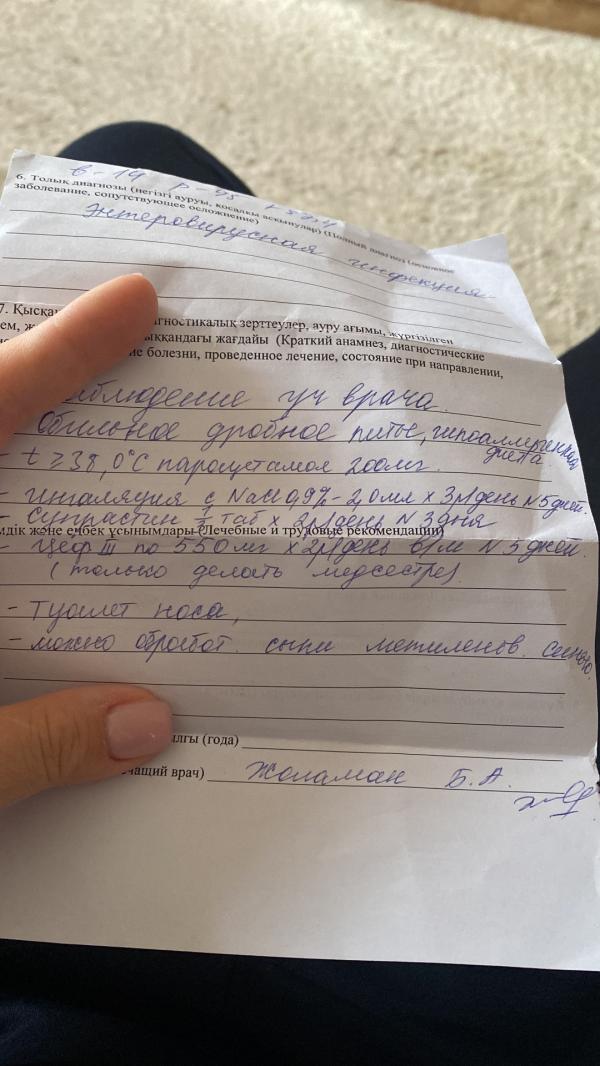 в - 14 р - 45
6. Толық диагнозы (негізгі ауруы, қосалқы асқынулар) (Полный диагноз (основное
заболевание, сопутствующее осложнение)
Энтеровирусная инфекция
7. Қысқа
агностикалық зерттеулер, ауру ағымы, жүргізілген
ем, ж
ыққандағы жағдайы (Краткий анамнез, диагностические
ие болезни, проведенное лечение, состояние при направлении,
аблюдение уч врача.
Обильное дробное питье, гипоаллергенная
диета.
- t ≥ 38,0°C парацетамол 200мг.
- Ингаляция с NaCl 0,9% - 2,0 мл х 3р/день N 5 дней.
- Супрастин 1/4 таб х 2р/день N 3 дня
мдік және еңбек ұсынымлары (Лечебные и трудовые рекомендации)
- Цеф III по 550 мг х 2р/день в/м N 5 дней.
(только делать медсестре).
- Туалет носа,
- можно обработ. сыпи метиленов. синью.
ылғы (года)
чащий врач) Жоламан Б.А.